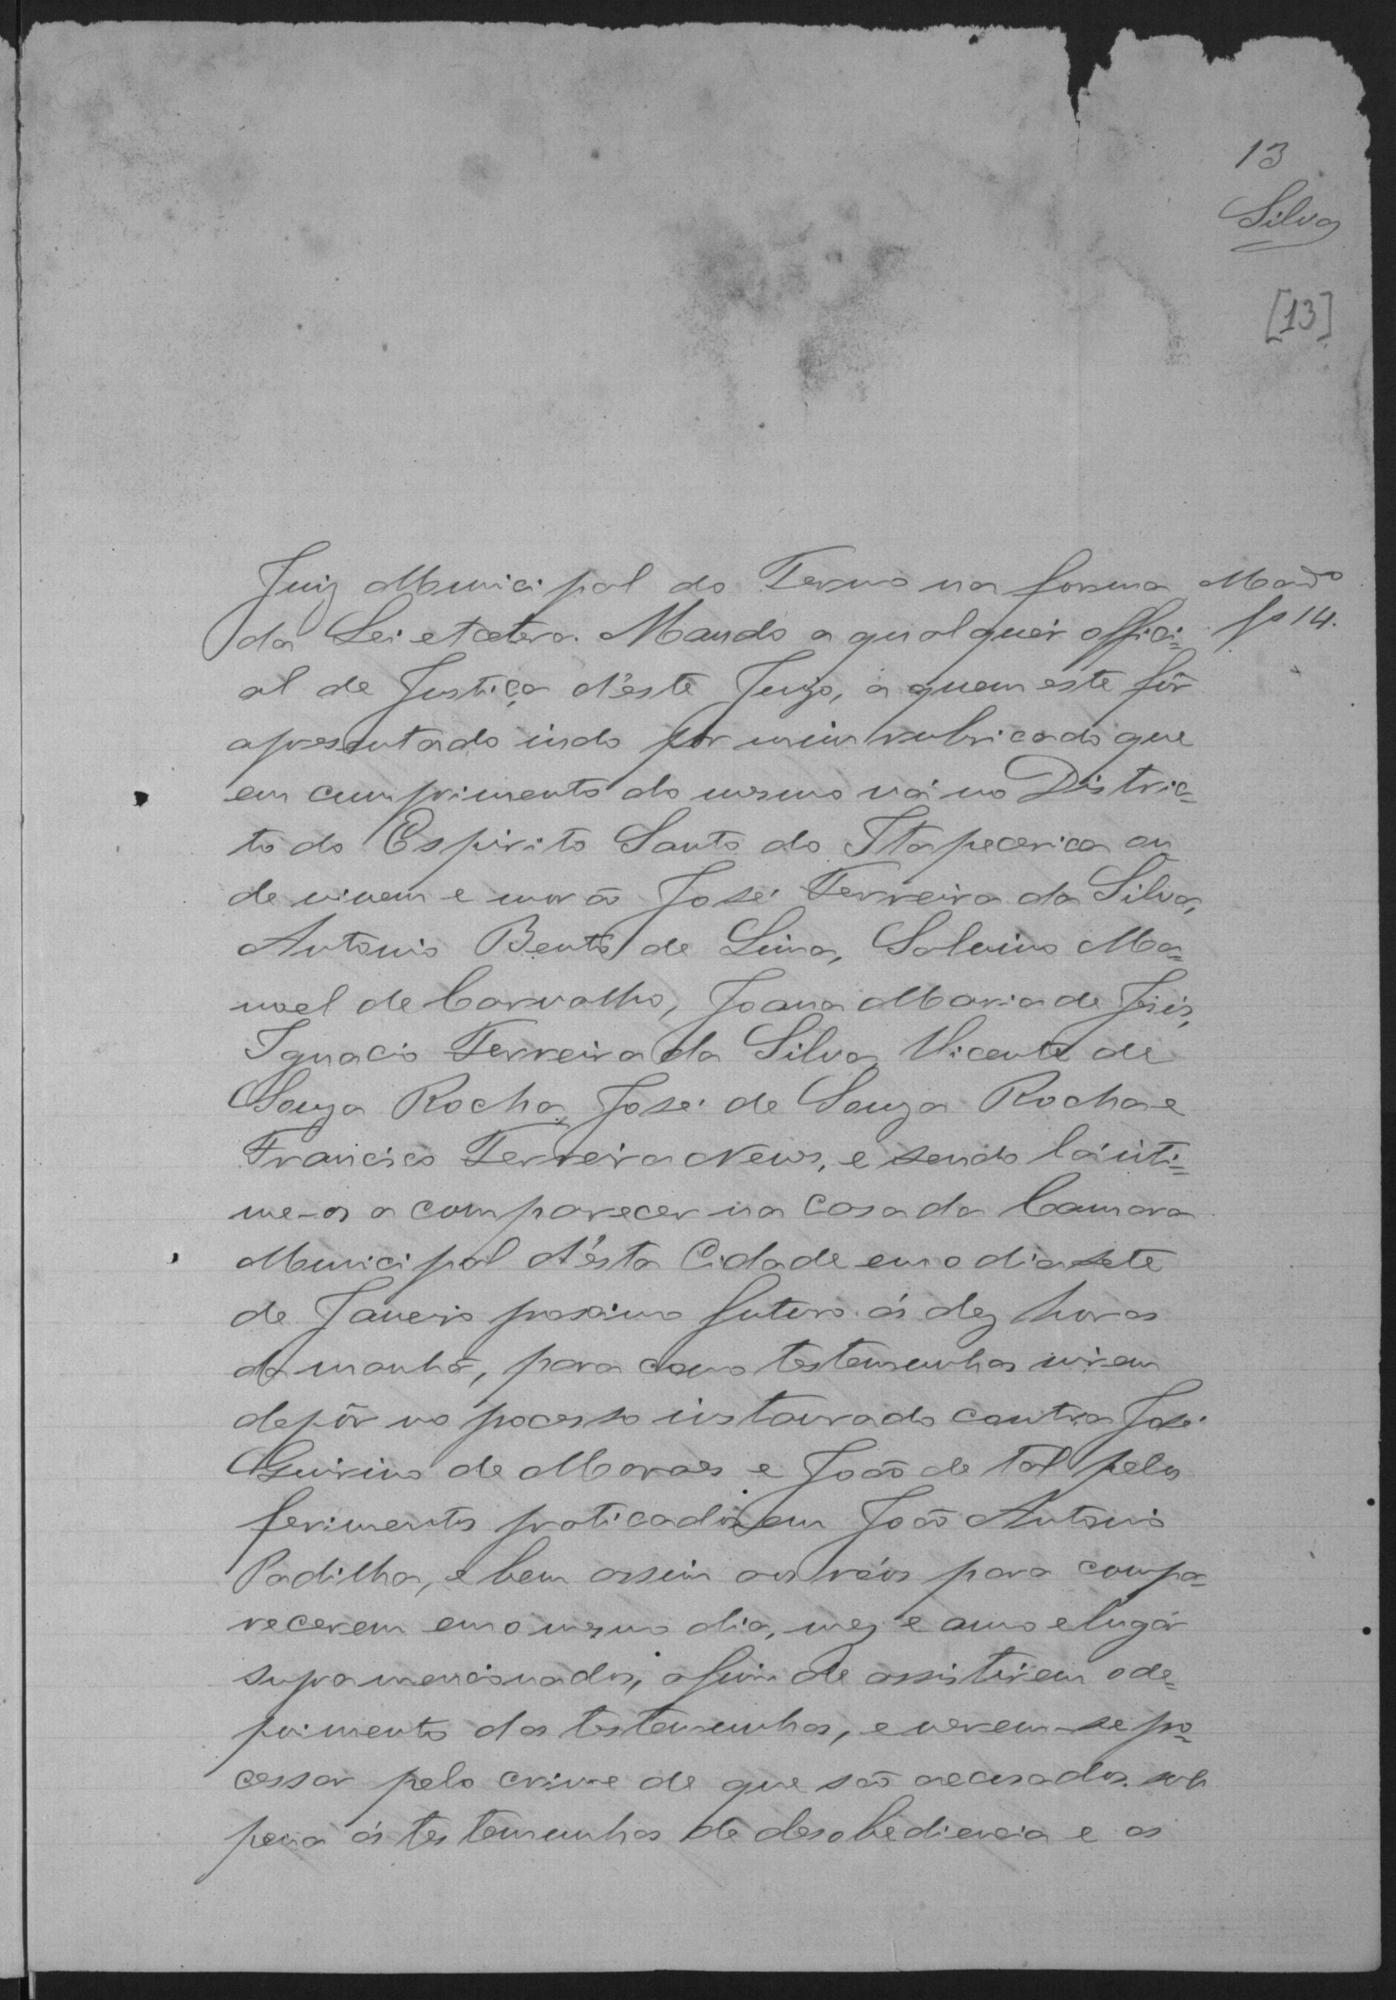 13
Silva
[13]
Juiz Municipal do Termo na forma Mando
da Lei etcetera. Mando a qualquér offici= fs 14.
al de Justiça d'éste Juizo, a quem este fôr
apresentado indo por mim rubricado que
em cumprimento do mesmo vá no Distric=
to do Espirito Santo do Itapecerica on
de vivem e morão José Ferreira da Silva,
Antonio Bento de Lima, Salvino Ma=
noel de Carvalho, Joana Maria de Jesis,
Ignacio Ferreira da Silva, Vicente de
Souza Rocha, José de Souza Rocha e
Francisco Ferreira News, e sendo lá inti=
me-os a comparecer na Casa da Camara
Municipal d'ésta Cidade em o dia sete
de Janeiro proximo futuro ás dez horas
da manhã, para como testemunhas virem
depôr no pocesso instaurado contra José
Guirino de Moraes e João de tal pelos
ferimentos praticados em João Antonio
Padilha, e bem assim aos réos para compa=
recerem em o mesmo dia, mez e anno e lugár
supra mencionados, afim de assistirem o de=
poimento das testemunhas, e verem-se po=
cessar pelo crime de que são accusados. sob
pena ás testemunhas de desobediencia e os